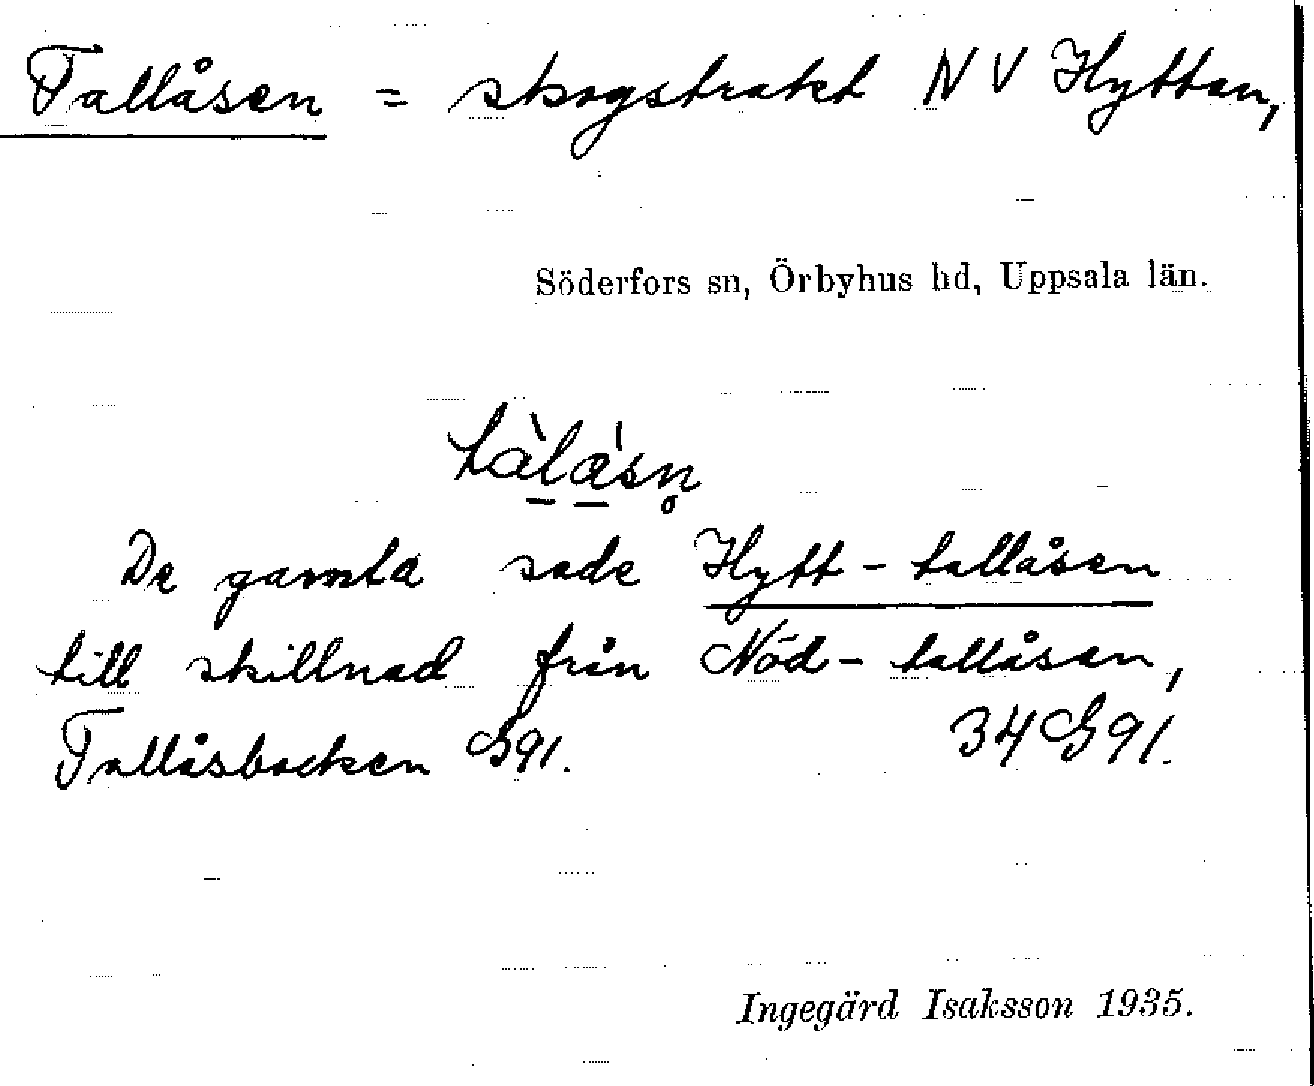 Tallåsen = skogstrakt NV Hyttan,
Söderfors sn, Örbyhus hd, Uppsala län.
tàlåsn̥
De gamla sade Hytt-tallåsen
till skillnad från Nöd-tallåsen,
Tallåsbacken G91. 34G91.
Ingegärd Isaksson 1935.